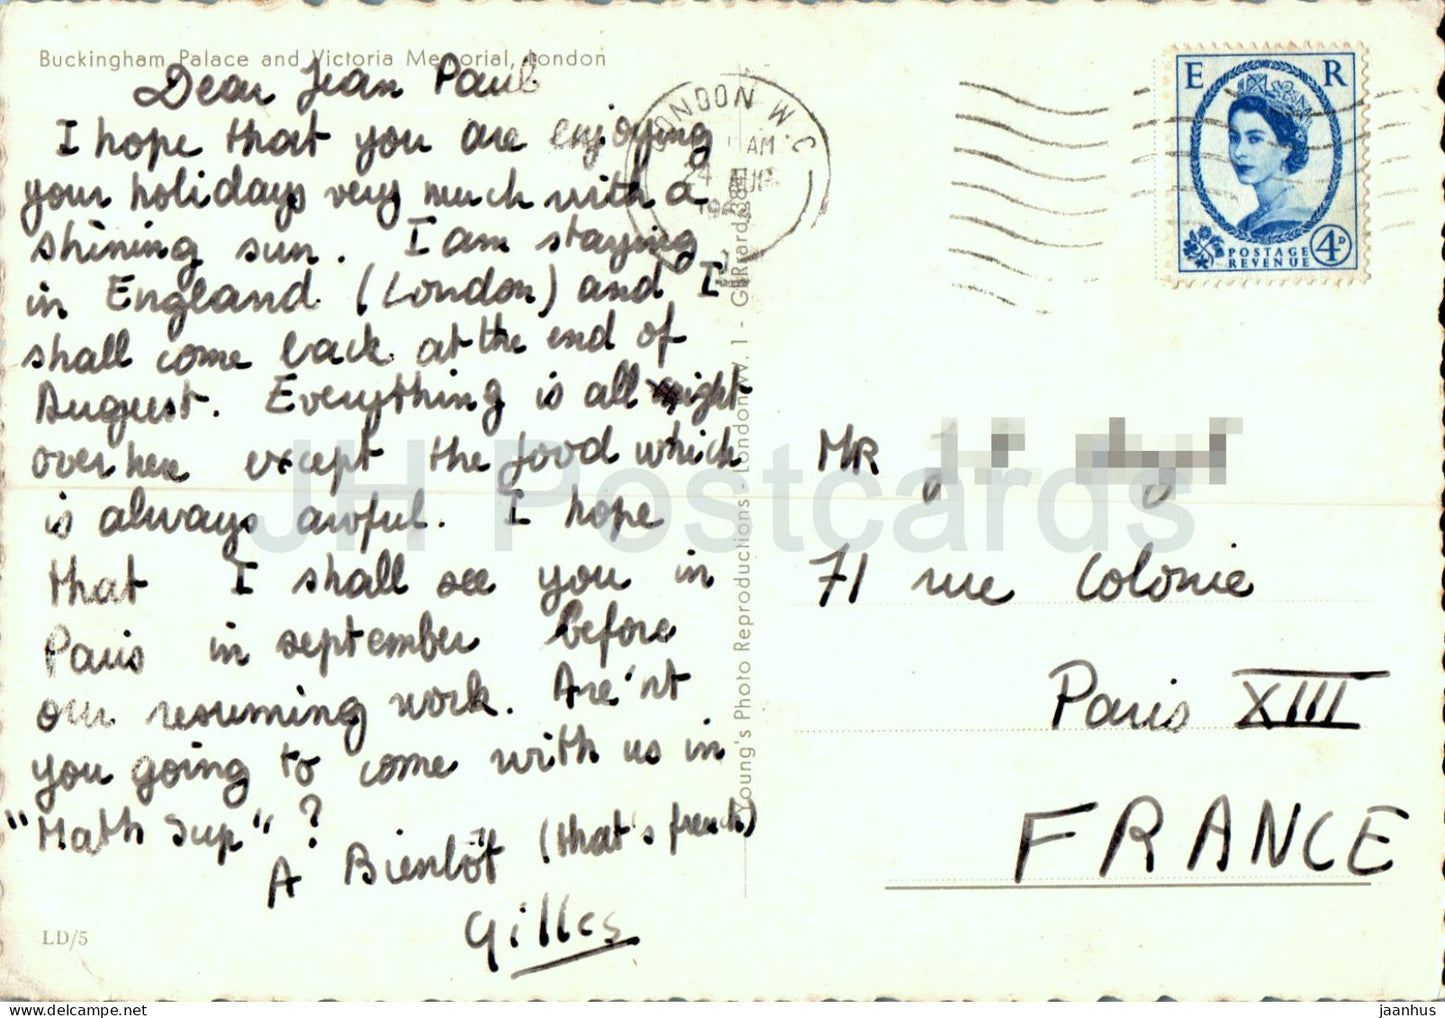 Buckingham Palace and Victoria Memorial, London
Dear Jean Paul
I hope that you are enjoying
your holidays very much with a
shining sun. I am staying
in England (London) and I
shall come back at the end of
August. Everything is all right
over here except the food which
is always awful. I hope
that I shall see you in
Paris in september before
our resuming work. Are'nt
you going to come with us in
"Math Sup"?
A Bientôt (that's french)
Gilles
LD/5
Young's Photo Reproductions - London W. 1 - GERrard
LONDON W.C.
AM
E R
POSTAGE
REVENUE
4D
MR
71 rue Colonie
Paris XIII
FRANCE
JH Postcards
jaanhus